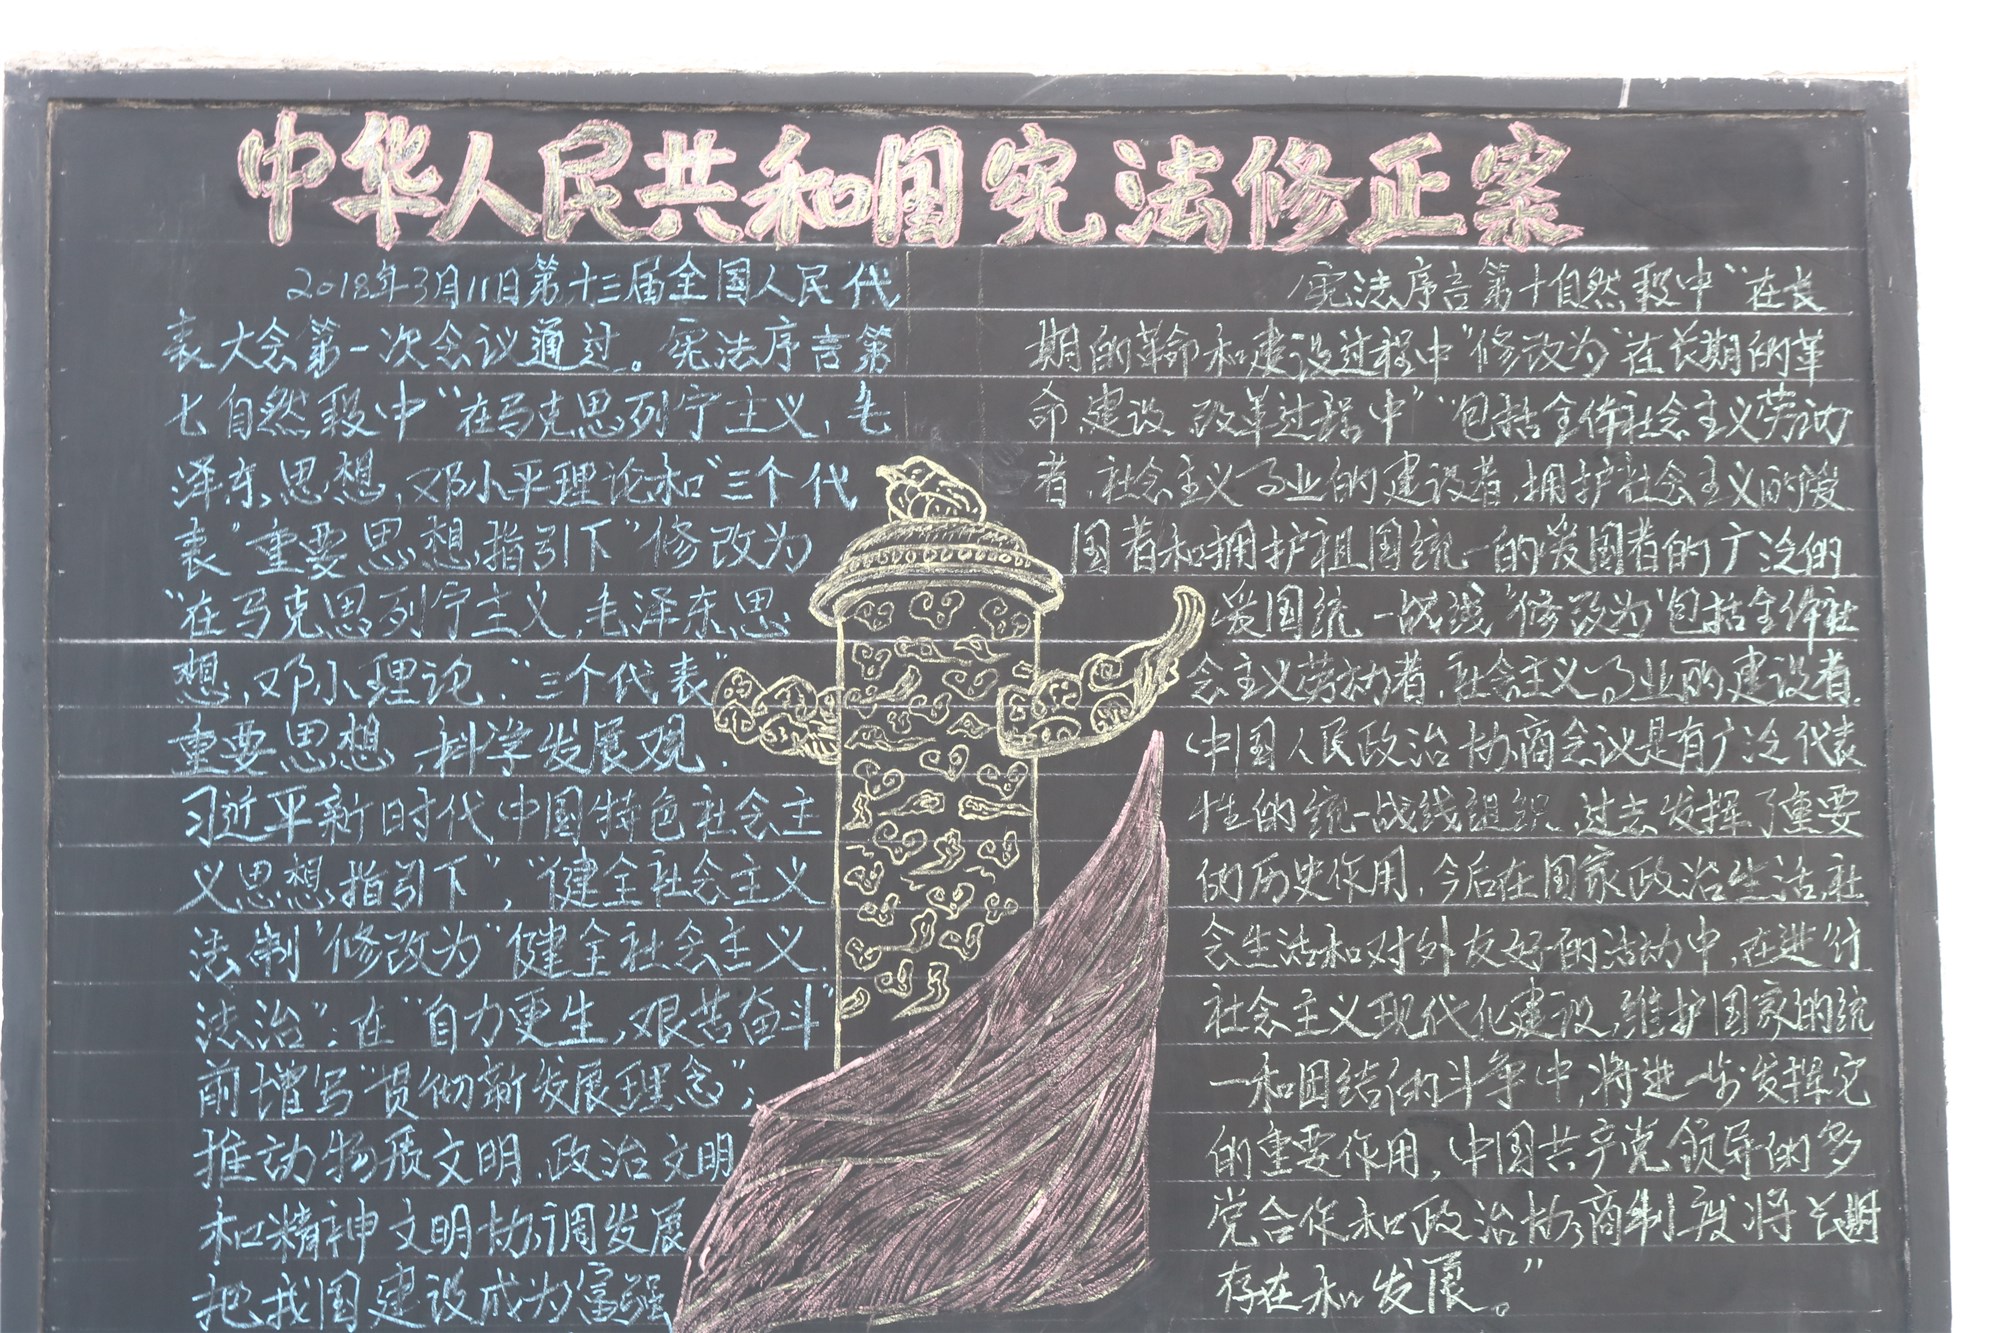 中华人民共和国宪法修正案
2018年3月11日第十三届全国人民代
表大会第一次会议通过。宪法序言第
七自然段中“在马克思列宁主义，毛
泽东思想，邓小平理论和“三个代
表”重要思想指引下”修改为
“在马克思列宁主义，毛泽东思
想，邓小理论，“三个代表”
重要思想，科学发展观，
习近平新时代中国特色社会主
义思想指引下”，“健全社会主义
法制”修改为“健全社会主义
法治”；在“自力更生，艰苦奋斗”
前增写“贯彻新发展理念”；
推动物质文明，政治文明
和精神文明协调发展
把我国建设成为富强
宪法序言第十自然段中“在长
期的革命和建设过程中”修改为“在长期的革
命，建设，改革过程中”“包括全体社会主义劳动
者，社会主义事业的建设者，拥护社会主义的爱
国者和拥护祖国统一的爱国者的广泛的
爱国统一战线”修改为“包括全体社
会主义劳动者，社会主义事业的建设者，
中国人民政治协商会议是有广泛代表
性的统一战线组织，过去发挥了重要
的历史作用，今后在国家政治生活，社
会生活和对外友好的活动中，在进行
社会主义现代化建设，维护国家的统
一和团结的斗争中，将进一步发挥它
的重要作用，中国共产党领导的多
党合作和政治协商制度将长期
存在和发展。”